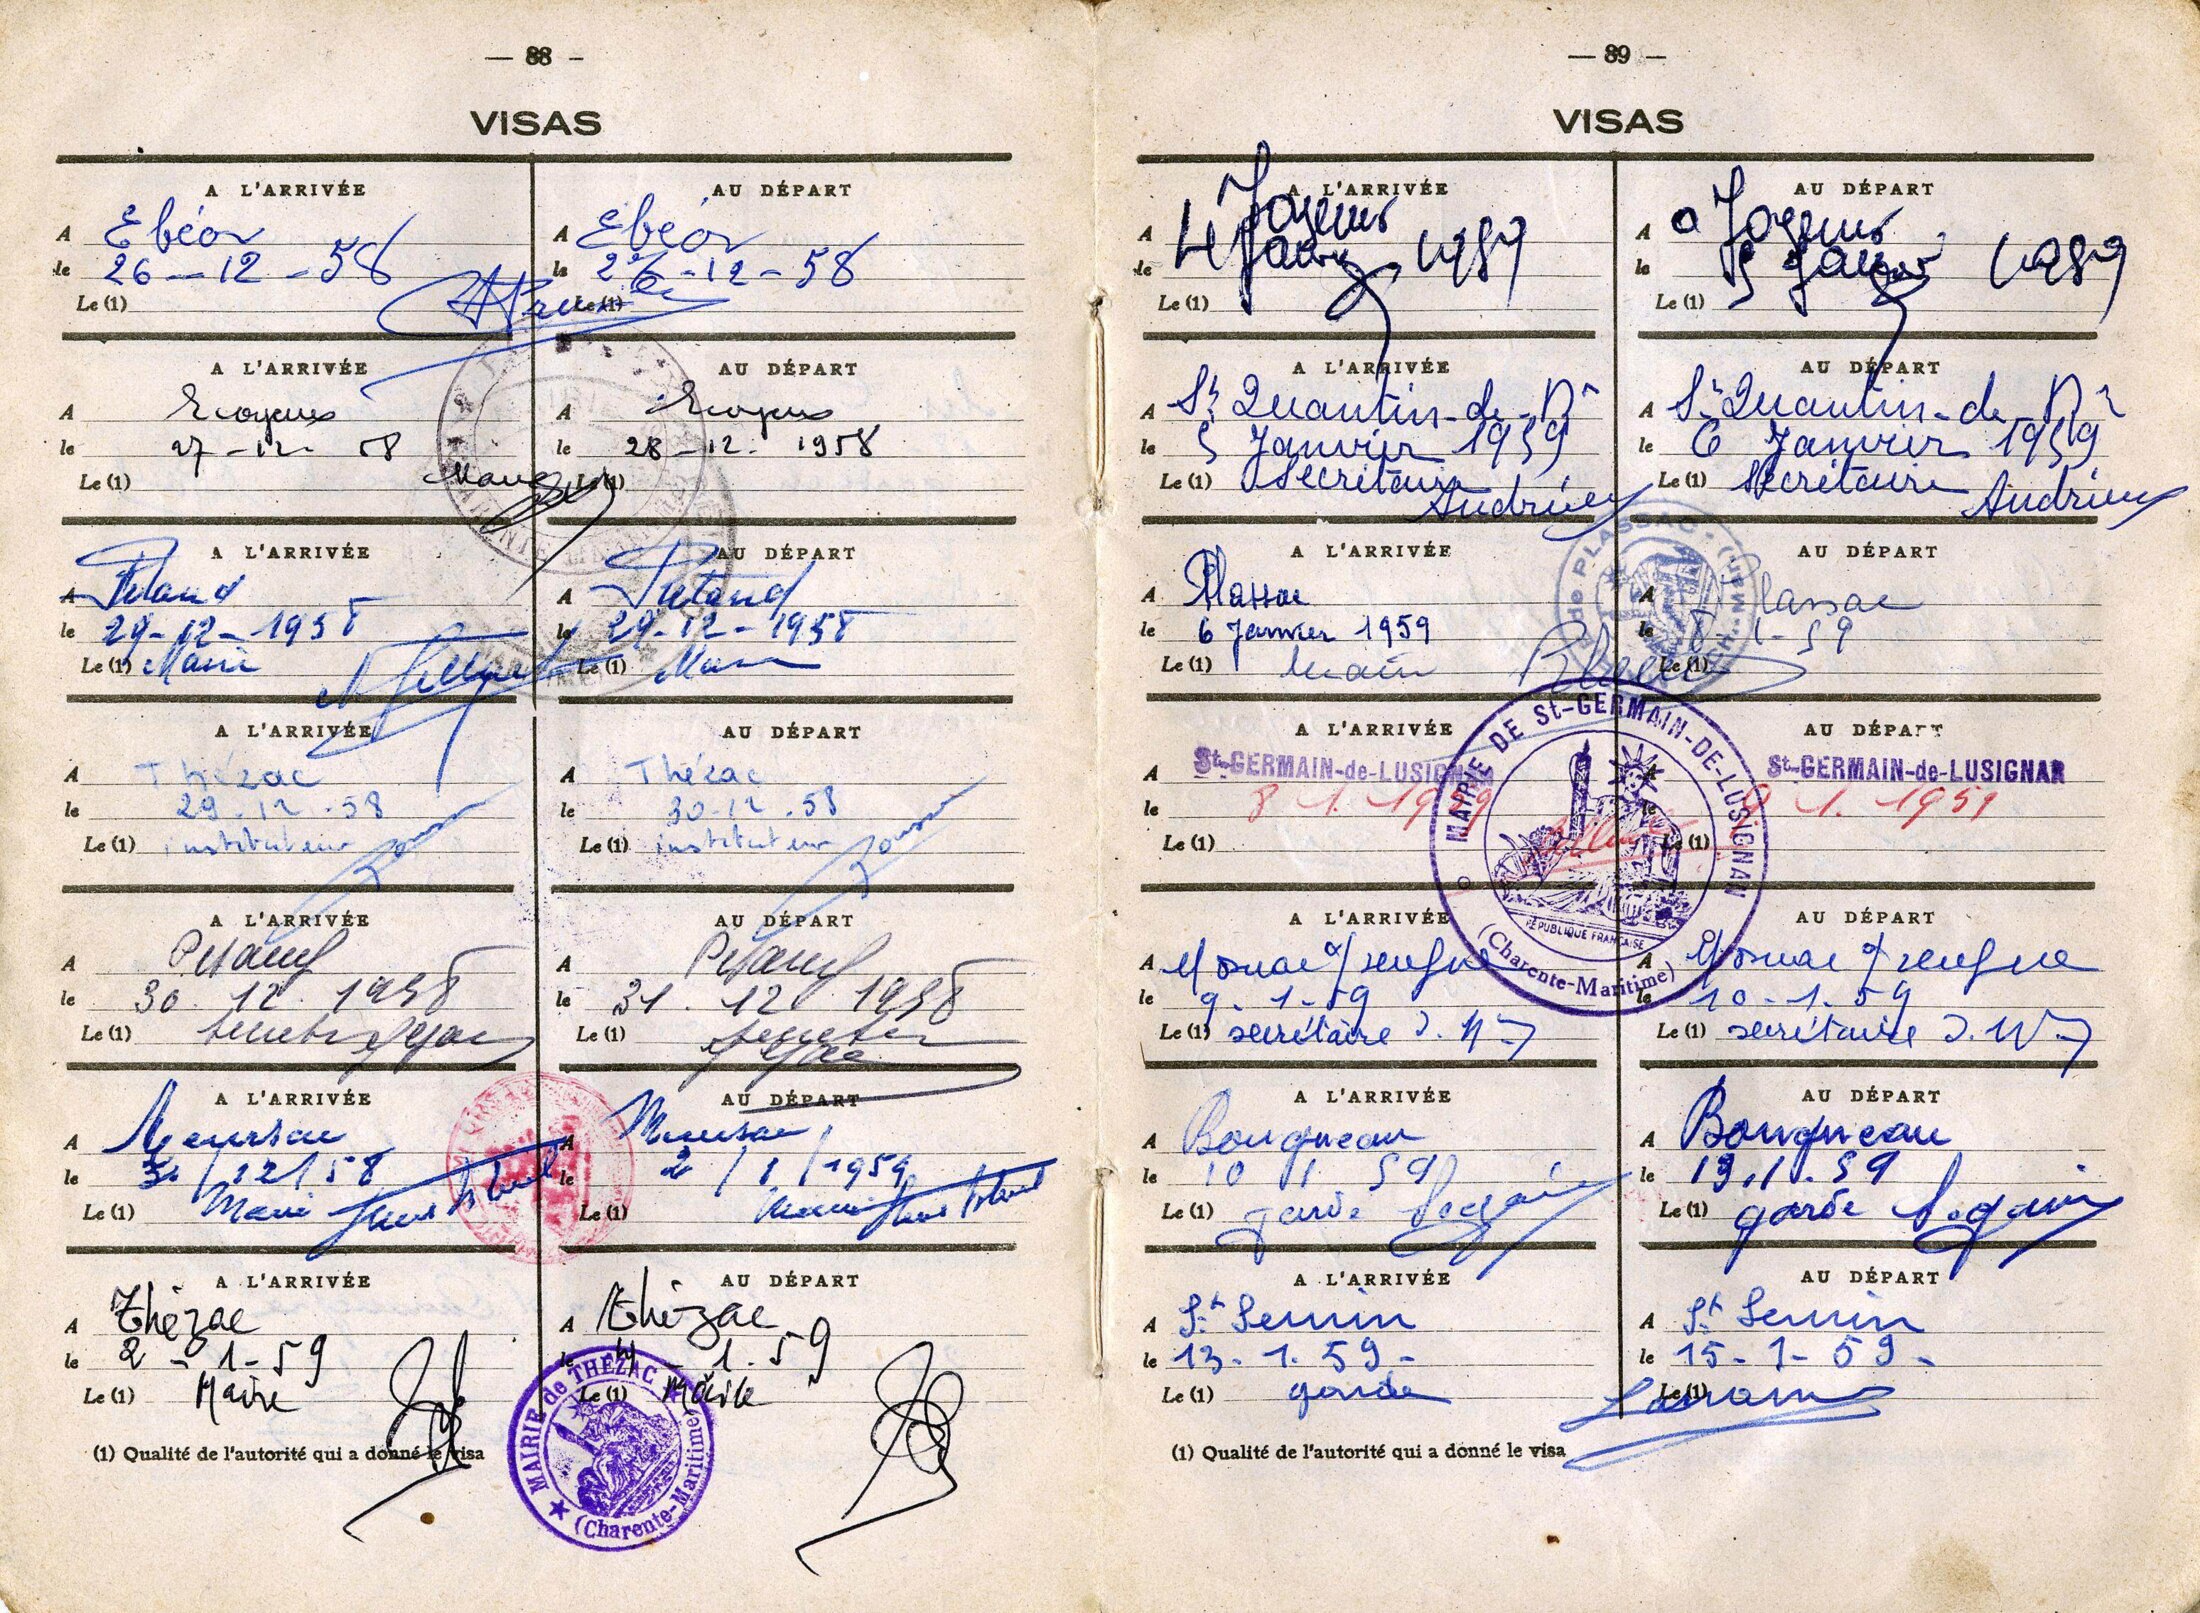 — 88 —
VISAS
A L'ARRIVÉE
A Ebéon
le 26-12-58
Le (1)
AU DÉPART
A Ebéon
le 27-12-58
Le (1)
A L'ARRIVÉE
A Ecoyeux
le 27-12-58
Le (1)
AU DÉPART
A Ecoyeux
le 28-12-1958
Le (1)
A L'ARRIVÉE
A
le 29-12-1958
Le (1) Maire
AU DÉPART
A
le 29-12-1958
Le (1) Maire
A L'ARRIVÉE
A Thézac
le 29-12-58
Le (1) instituteur
AU DÉPART
A Thézac
le 30-12-58
Le (1) instituteur
A L'ARRIVÉE
A Pisany
le 30.12.1958
Le (1)
AU DÉPART
A Pisany
le 31.12.1958
Le (1)
A L'ARRIVÉE
A Meursac
le 31/12/58
Le (1) Maire
AU DÉPART
A Meursac
le 2/1/1959
Le (1)
A L'ARRIVÉE
A Thézac
le 2-1-59
Le (1) Maire
AU DÉPART
A Thézac
le 4-1.59
Le (1) Maire
MAIRIE de THÉZAC
(Charente-Maritime)
(1) Qualité de l'autorité qui a donné le visa
— 89 —
VISAS
A L'ARRIVÉE
A
le 4 1959
Le (1)
AU DÉPART
A
le 5 1959
Le (1)
A L'ARRIVÉE
A St Quantin-de-Rç
le 5 Janvier 1959
Le (1) Secrétaire
Andrieux
AU DÉPART
A St Quantin-de-Rç
le 6 Janvier 1959
Le (1) Secrétaire
Andrieux
A L'ARRIVÉE
A Plassac
le 6 Janvier 1959
Le (1) Maire
AU DÉPART
A Plassac
le 8-1-59
Le (1)
de PLASSAC (Ch.-Mar.)
A L'ARRIVÉE
A St-GERMAIN-de-LUSIGNAN
le 8.1.1959
Le (1)
AU DÉPART
A St-GERMAIN-de-LUSIGNAN
le 9.1.1959
Le (1)
MAIRIE DE St-GERMAIN-DE-LUSIGNAN
RÉPUBLIQUE FRANÇAISE
(Charente-Maritime)
A L'ARRIVÉE
A
le 9.1.59
Le (1) secrétaire
AU DÉPART
A
le 10-1.59
Le (1) secrétaire
A L'ARRIVÉE
A Bougneau
le 10 1 59
Le (1) garde Seguin
AU DÉPART
A Bougneau
le 13.1.59
Le (1) garde Seguin
A L'ARRIVÉE
A St Seurin
le 13-1.59-
Le (1) garde
AU DÉPART
A St Seurin
le 15-1-59-
Le (1)
(1) Qualité de l'autorité qui a donné le visa